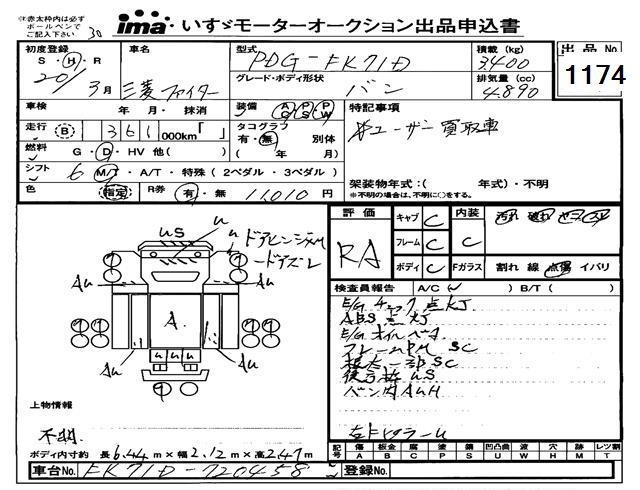 ※赤太枠内は必ず
ボールペンで
ご記入下さい
30
ima いすゞモーターオークション出品申込書
初度登録 車名 型式 PDG-FK71D 積載 (kg) 出品 No.
S・H・R 3400
20年 3月 三菱ファイター グレード・ボディ形状 バン 排気量 (cc) 4.890 1174
車検 年 月・ 抹消 装備 AC PS PW 特記事項
走行 B 1361 000km「 」 タコグラフ 有・無 別体 ユーザー買取車
燃料 G・D・HV 他( ) ( 年 月)
シフト 6 M/T・A/T・特殊 (2ペダル・3ペダル) 架装物年式:( 年式)・不明
色 指定 R券 有・無 11,010 円 ※不明の場合は、不明に○をする。
評価 RA キャブ C 内装 C 汚れ 破れ
フレーム C
ボディ C Fガラス 割れ 線 点傷 イバリ
検査員報告 A/C( ) B/T( )
uS u u
ドアズレ
Au Au
A
Au Au
E/G チェック点灯
ABS点灯
E/G オイル
フレームPM SC
一部SC
uS
バン内AuH
上物情報
不明
ボディ内寸約 長6.44m×幅2.12m×高2.47m
記号 傷 板金 配 塗 錆 凹凸曲 波 穴 跡 レツ割
A B C P S U W H M T
車台No. FK71D-720458 登録No.